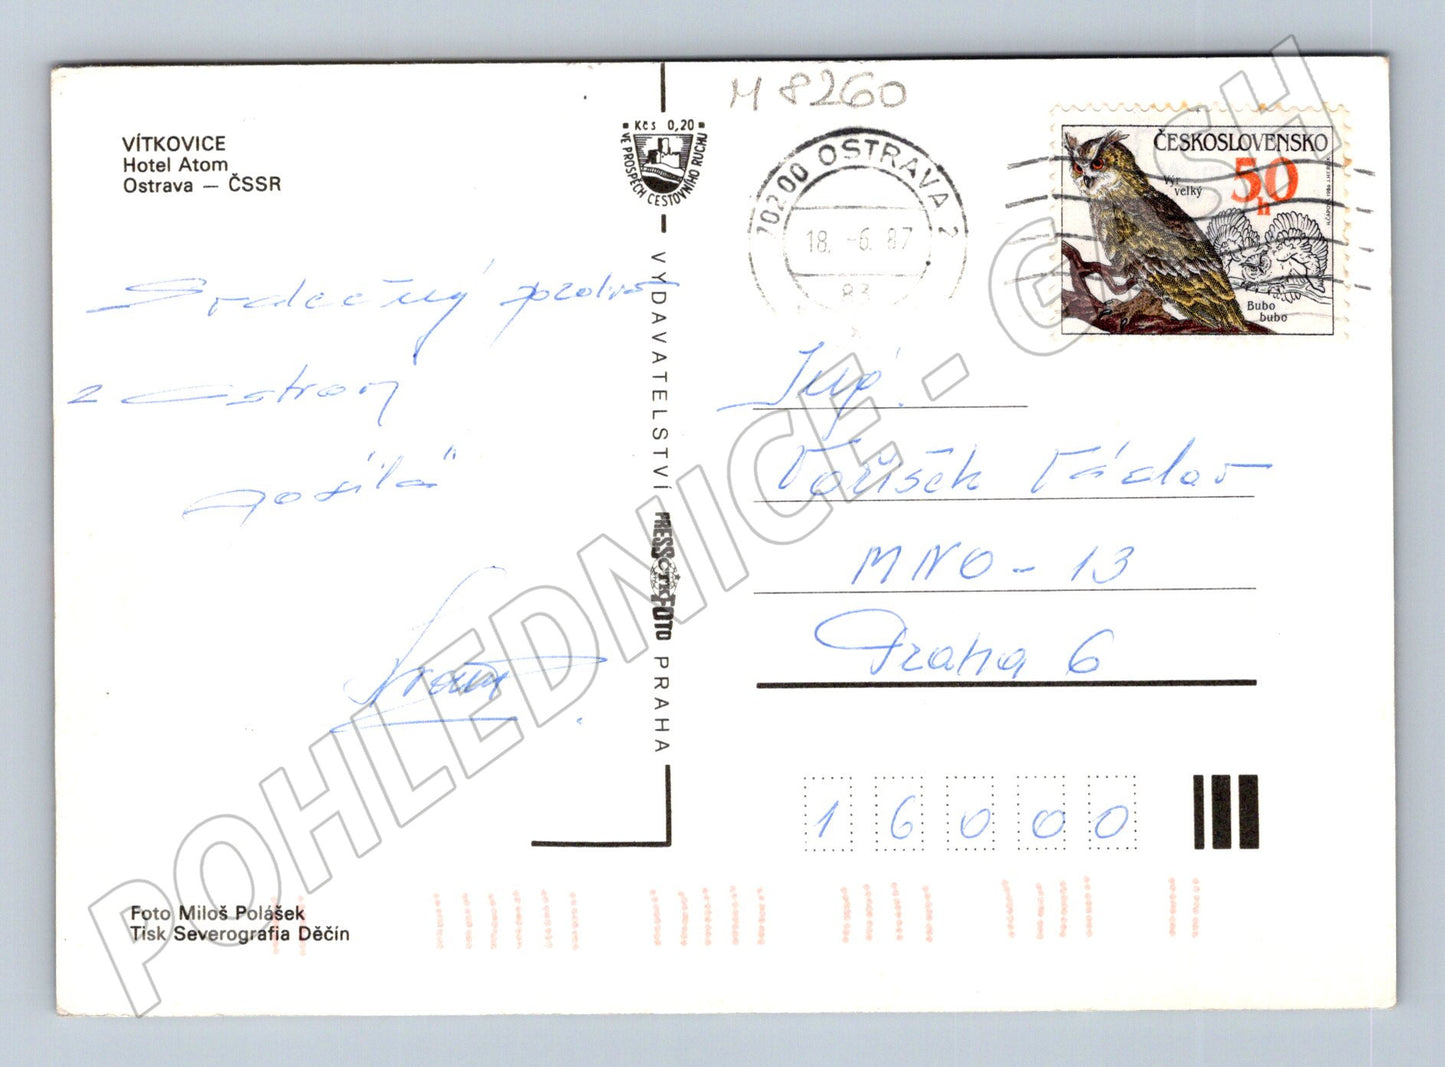 VÍTKOVICE
Hotel Atom
Ostrava — ČSSR
M 8260
Kčs 0,20
VE PROSPĚCH CESTOVNÍHO RUCHU
70200 OSTRAVA 2
18. -6. 87
ČESKOSLOVENSKO
50
h
Výr
velký
Bubo
bubo
Srdečný pozdrav
z Ostravy
posílá
VYDAVATELSTVÍ PRESSFOTO PRAHA
ČTK
Voříšek Václav
MNO - 13
Praha 6
16000
Foto Miloš Polášek
Tisk Severografia Děčín
POHLEDNICE - G SH